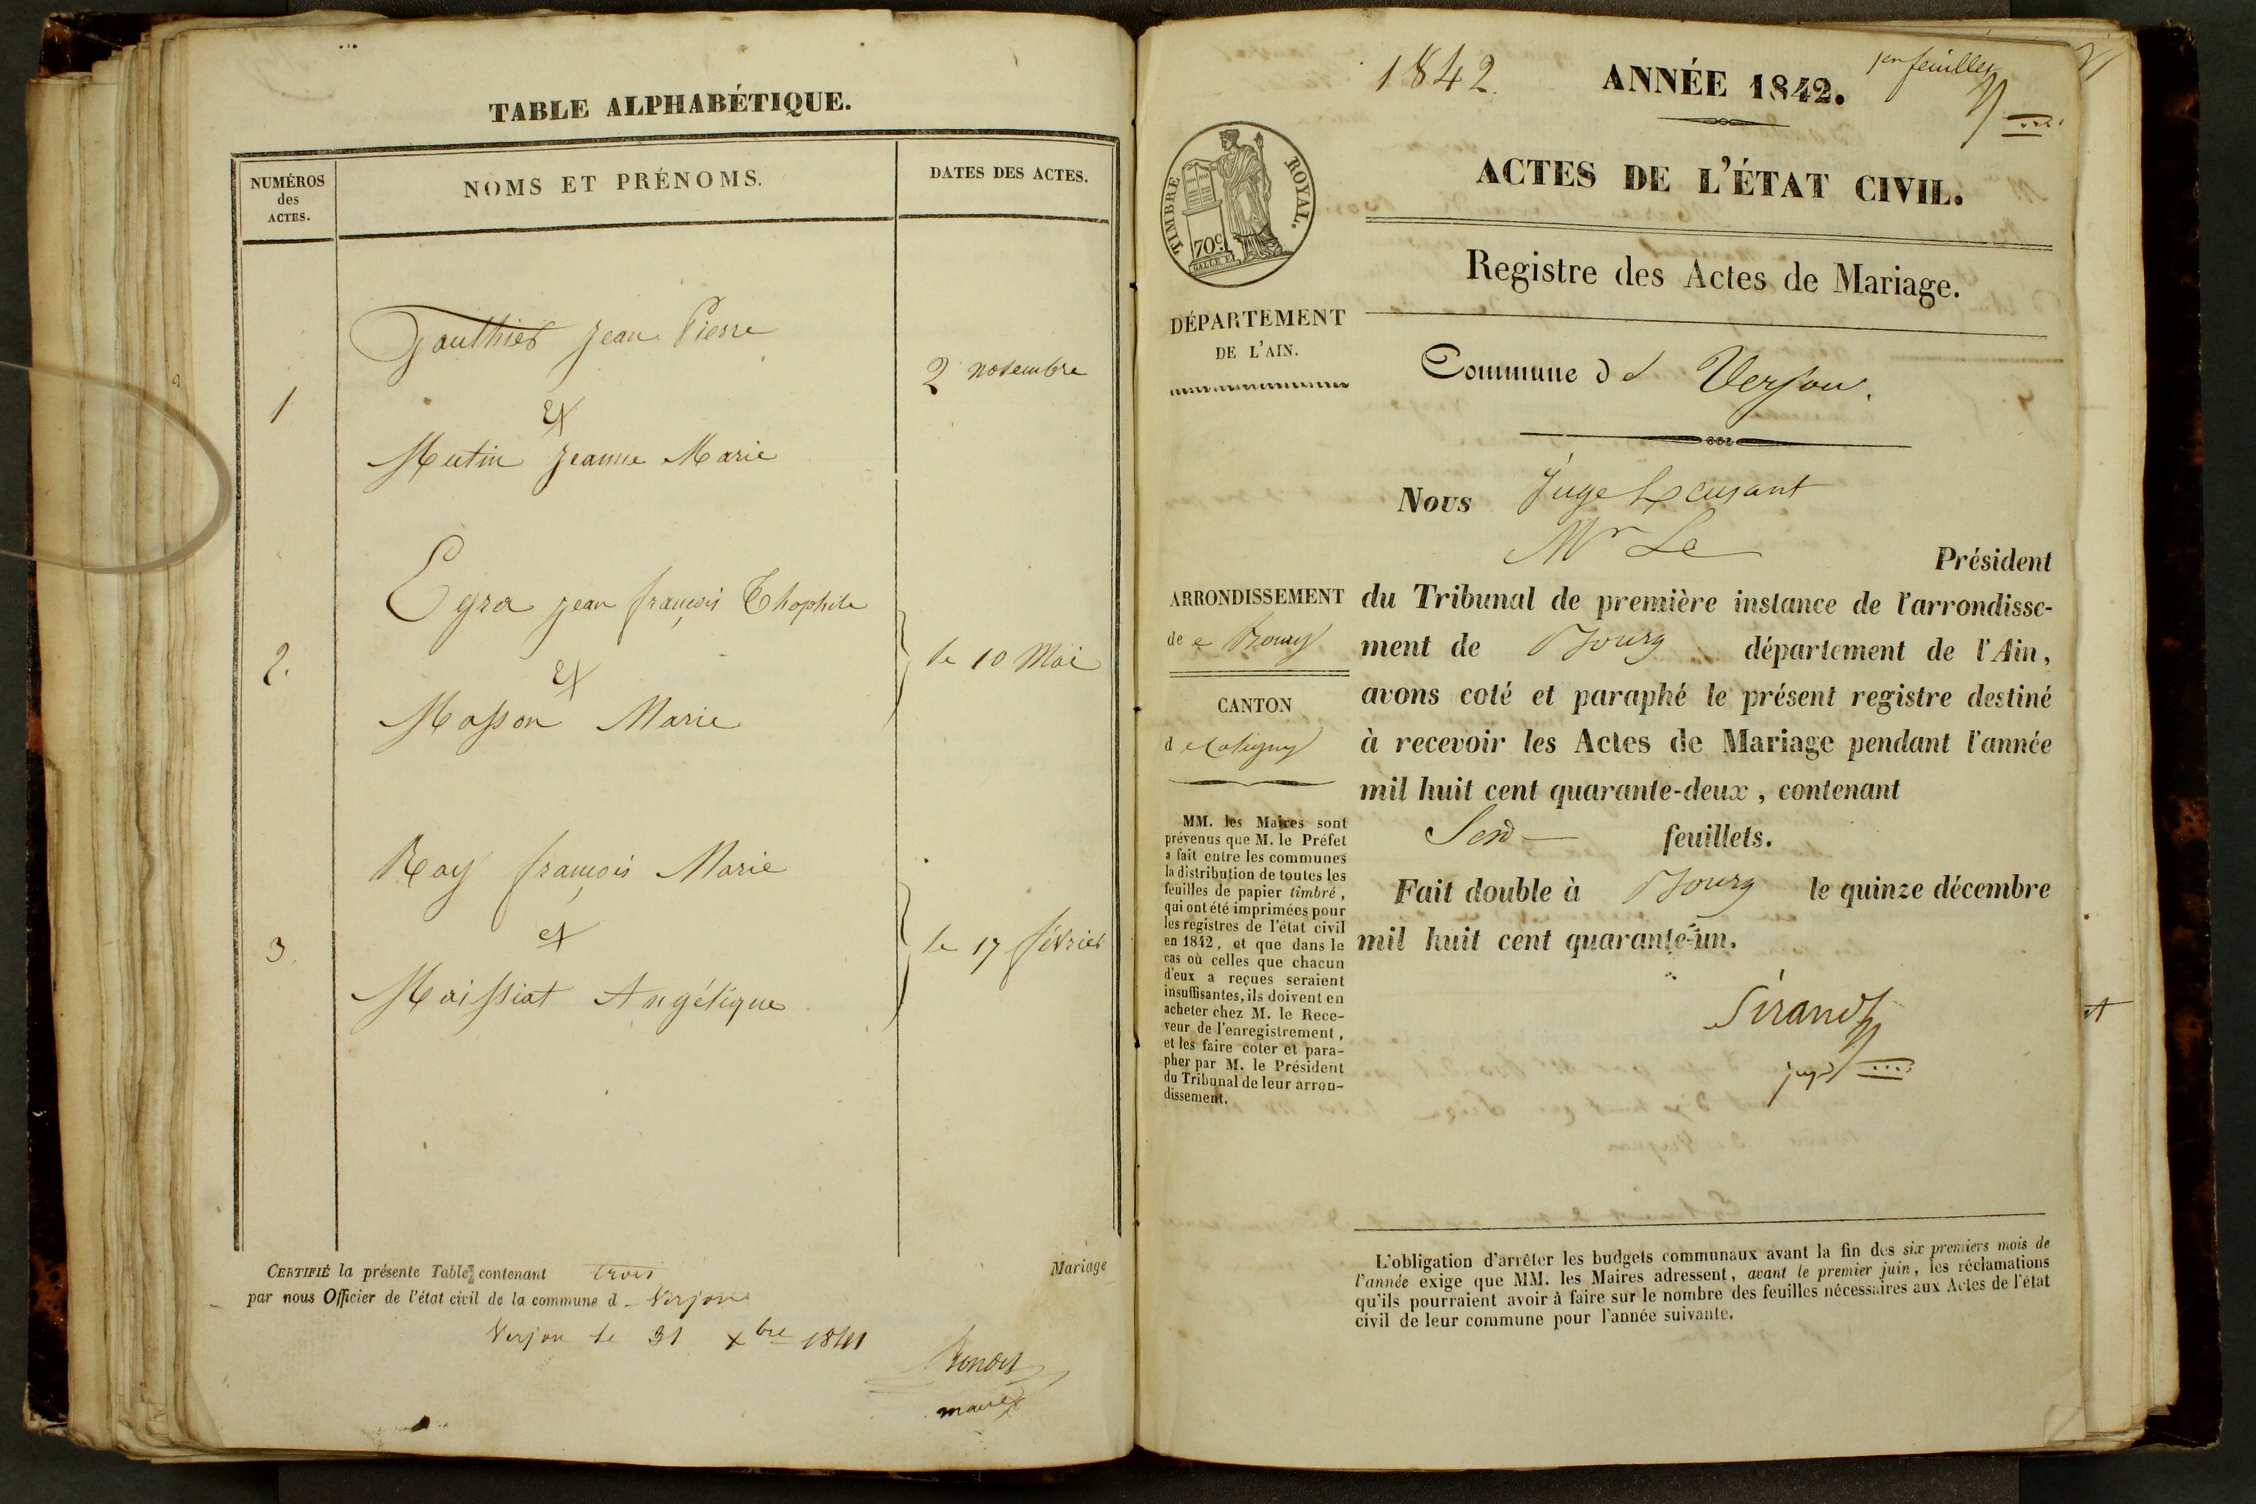 TABLE ALPHABÉTIQUE.
NUMÉROS
des
ACTES.
NOMS ET PRÉNOMS.
DATES DES ACTES.
1
Gauthier Jean Pierre
et
Mutin Jeanne Marie
2 novembre
2.
Egra jean françois Thophile
et
Masson Marie
le 10 Mai
3.
Ray françois Marie
et
Maissiat Angélique
le 17 février
CERTIFIÉ la présente Table contenant trois
Mariage
par nous Officier de l'état civil de la commune d Verjon
Verjon le 31 xbre 1841
maire
1842.
ANNÉE 1842.
1er feuillet
TIMBRE ROYAL.
70 c.
ACTES DE L'ÉTAT CIVIL.
Registre des Actes de Mariage.
DÉPARTEMENT
DE L'AIN.
Commune d e Verjon.
Nous Juge
Mr Le Président
ARRONDISSEMENT
de Bourg
CANTON
d e Coligny
du Tribunal de première instance de l'arrondisse-
ment de Bourg département de l'Ain,
avons coté et paraphé le présent registre destiné
à recevoir les Actes de Mariage pendant l'année
mil huit cent quarante-deux, contenant
feuillets.
Fait double à Bourg le quinze décembre
mil huit cent quarante-un.
Sirand
juge
MM. les Maires sont
prévenus que M. le Préfet
a fait entre les communes
la distribution de toutes les
feuilles de papier timbré,
qui ont été imprimées pour
les registres de l'état civil
en 1842, et que dans le
cas où celles que chacun
d'eux a reçues seraient
insuffisantes, ils doivent en
acheter chez M. le Rece-
veur de l'enregistrement,
et les faire coter et para-
pher par M. le Président
du Tribunal de leur arron-
dissement.
L'obligation d'arrêter les budgets communaux avant la fin des six premiers mois de
l'année exige que MM. les Maires adressent, avant le premier juin, les réclamations
qu'ils pourraient avoir à faire sur le nombre des feuilles nécessaires aux Actes de l'état
civil de leur commune pour l'année suivante.